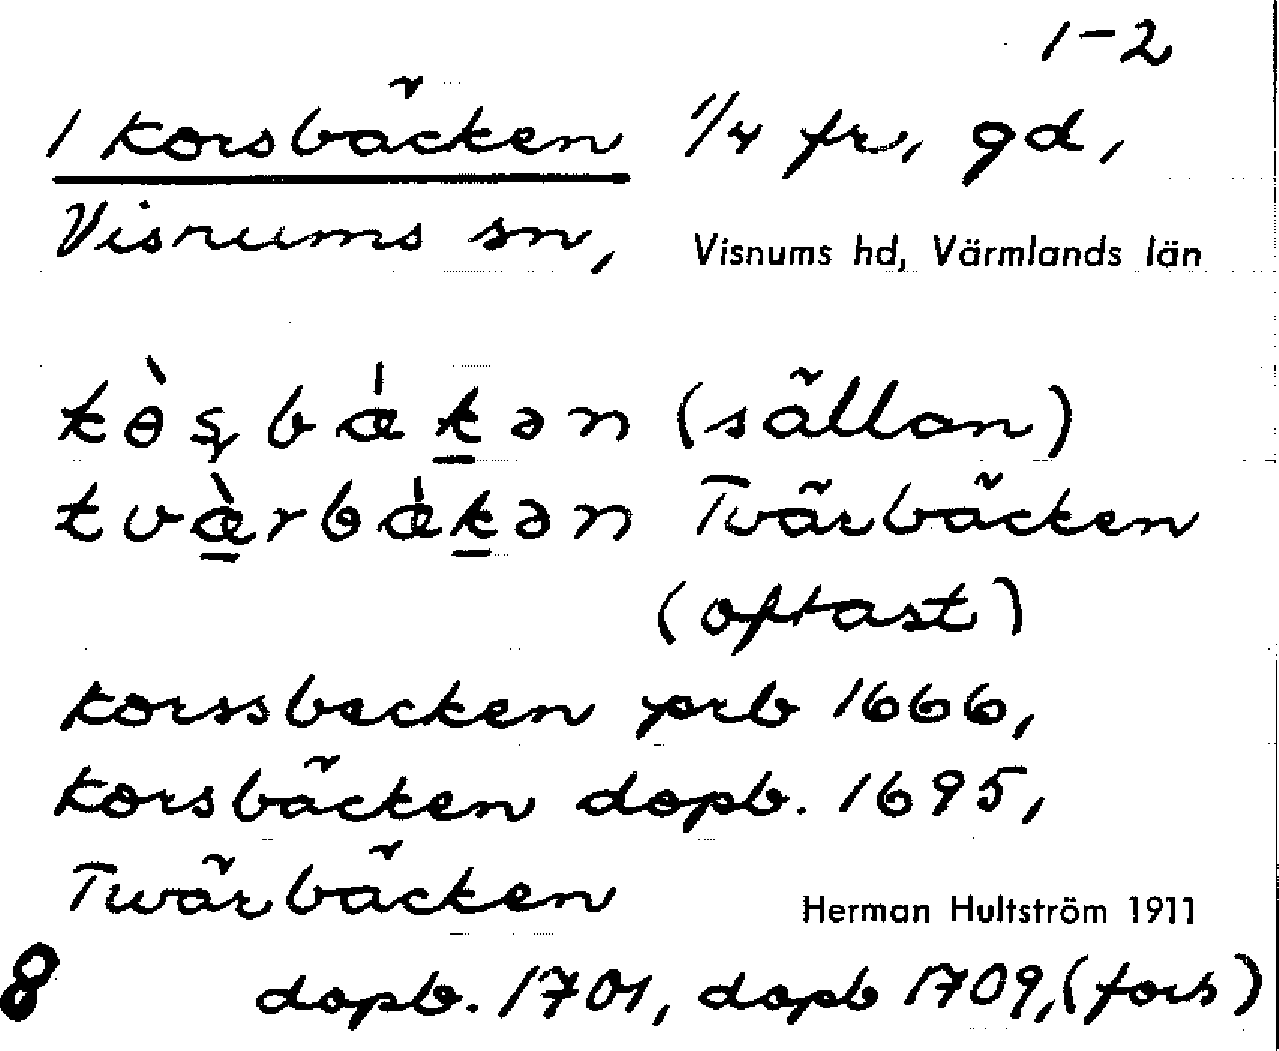 1-2
1 Korsbäcken 1/4 fr, gd,
Visnums sn, Visnums hd, Värmlands län
(sällan)
Tvärbäcken
(oftast)
Korssbecken prb 1666,
Korsbäcken dopb. 1695,
Twärbäcken
Herman Hultström 1911
8 dopb. 1701, dopb 1709, (fors)